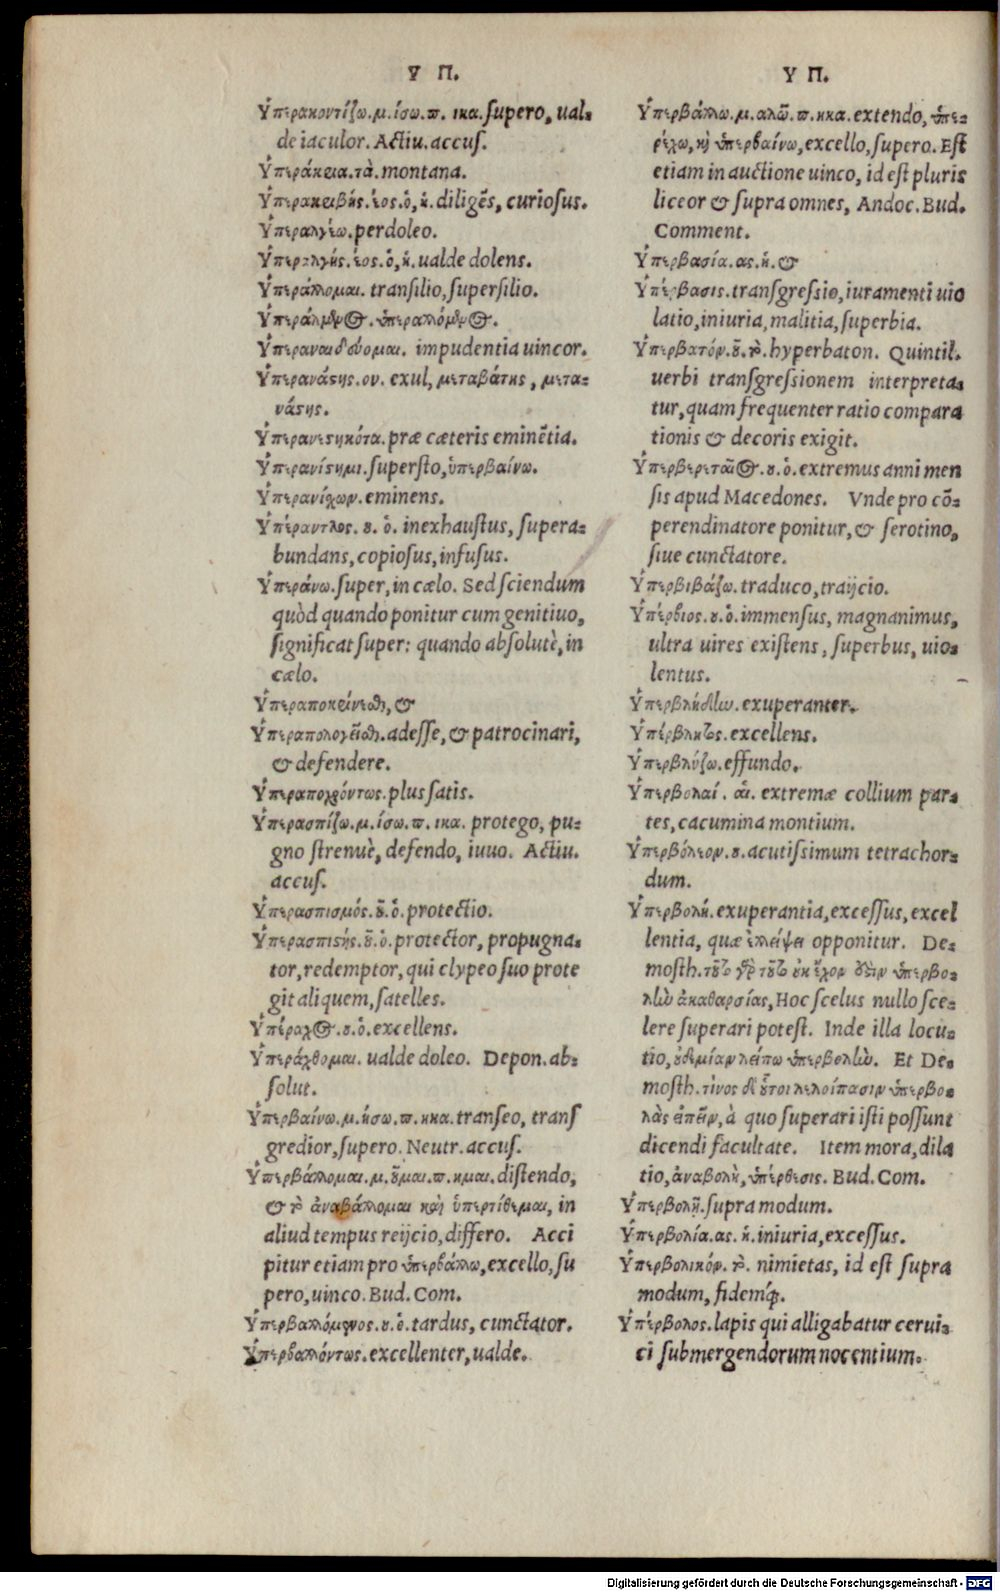 Υ Π.
Ὑπερακοντίζω.μ.ίσω.π. ικα.ſupero, ual-
de iaculor. Actiu. accuſ.
Ὑπεράκρια.τὰ.montana.
Ὑπερακριβής.έος.ὁ,ἡ.diligēs, curioſus.
Ὑπεραλγέω.perdoleo.
Ὑπεραλγής.έος.ὁ,ἡ.ualde dolens.
Ὑπεράλλομαι. tranſilio, ſuperſilio.
Ὑπεράλμενος.ὑπεραλλόμενος.
Ὑπεραναιδεύομαι. impudentia uincor.
Ὑπερανάστης.ου. exul, μεταβάτης, μετα-
νάστης.
Ὑπερανεστηκότα.præ cæteris eminētia.
Ὑπερανίστημι.ſuperſto, ὑπερβαίνω.
Ὑπερανίσχων.eminens.
Ὑπέραντλος.ου.ὁ. inexhauſtus, ſupera-
bundans, copioſus, infuſus.
Ὑπεράνω.ſuper, in cælo. Sed ſciendum
quòd quando ponitur cum genitiuo,
ſignificat ſuper: quando abſolutè, in
cælo.
Ὑπεραποκρίνεσθαι, &
Ὑπεραπολογεῖσθαι.adeſſe, & patrocinari,
& defendere.
Ὑπεραποχρόντως.plus ſatis.
Ὑπερασπίζω.μ.ίσω.π. ικα. protego, pu-
gno ſtrenuè, defendo, iuuo. Actiu.
accuſ.
Ὑπερασπισμός.οῦ.ὁ.protectio.
Ὑπερασπιστής.οῦ.ὁ.protector, propugna-
tor, redemptor, qui clypeo ſuo prote
git aliquem, ſatelles.
Ὑπέραχος.ου.ὁ.excellens.
Ὑπεράχθομαι. ualde doleo. Depon. ab-
ſolut.
Ὑπερβαίνω.μ.ήσω.π.ηκα.tranſeo, tranſ
gredior, ſupero. Neutr. accuſ.
Ὑπερβάλλομαι.μ.οῦμαι.π.ημαι.diſtendo,
& τὸ ἀναβάλλομαι καὶ ὑπερτίθεμαι, in
aliud tempus reijcio, differo. Acci
pitur etiam pro ὑπερβάλλω, excello, ſu
pero, uinco. Bud. Com.
Ὑπερβαλλόμενος.ου.ὁ.tardus, cunctator.
Ὑπερβαλλόντως.excellenter, ualde.
Υ Π.
Ὑπερβάλλω.μ.αλῶ.π.ηκα.extendo, ὑπε-
ρέχω, καὶ ὑπερβαίνω, excello, ſupero. Eſt
etiam in auctione uinco, id eſt pluris
liceor & ſupra omnes, Andoc. Bud.
Comment.
Ὑπερβασία.ας.ἡ.&
Ὑπέρβασις.tranſgreſsio, iuramenti uio
latio, iniuria, malitia, ſuperbia.
Ὑπερβατόν.οῦ.τὸ.hyperbaton. Quintil.
uerbi tranſgreſsionem interpreta-
tur, quam frequenter ratio compara
tionis & decoris exigit.
Ὑπερβερεταῖος.ου.ὁ.extremus anni men
ſis apud Macedones. Vnde pro cō-
perendinatore ponitur, & ſerotino,
ſiue cunctatore.
Ὑπερβιβάζω.traduco, traijcio.
Ὑπέρβιος.ου.ὁ.immenſus, magnanimus,
ultra uires exiſtens, ſuperbus, uio-
lentus.
Ὑπερβλήδην.exuperanter.
Ὑπέρβλητος.excellens.
Ὑπερβλύζω.effundo.
Ὑπερβολαί. αἱ. extremæ collium par-
tes, cacumina montium.
Ὑπερβόλεον.ου.acutiſsimum tetrachor-
dum.
Ὑπερβολή.exuperantia, exceſſus, excel
lentia, quæ ἐλλείψει opponitur. De-
moſth.τοῦτο γὰρ τοῦτο οὐκ ἔχον οὐδεὶν ὑπερβο-
λὴν ἀκαθαρσίας, Hoc ſcelus nullo ſce-
lere ſuperari poteſt. Inde illa locu-
tio, οὐδεμίαν λείπω ὑπερβολὴν. Et De-
moſth.τίνος δὲ οὗτοι λελοίπασιν ὑπερβο-
λὰς εἰπεῖν, à quo ſuperari iſti poſſunt
dicendi facultate. Item mora, dila
tio, ἀναβολὴ, ὑπέρθεσις. Bud. Com.
Ὑπερβολῇ.ſupra modum.
Ὑπερβολία.ας.ἡ.iniuria, exceſſus.
Ὑπερβολικόν.τὸ. nimietas, id eſt ſupra
modum, fidemq́;.
Ὑπέρβολος.lapis qui alligabatur cerui-
ci ſubmergendorum nocentium.
Digitalisierung gefördert durch die Deutsche Forschungsgemeinschaft - DFG